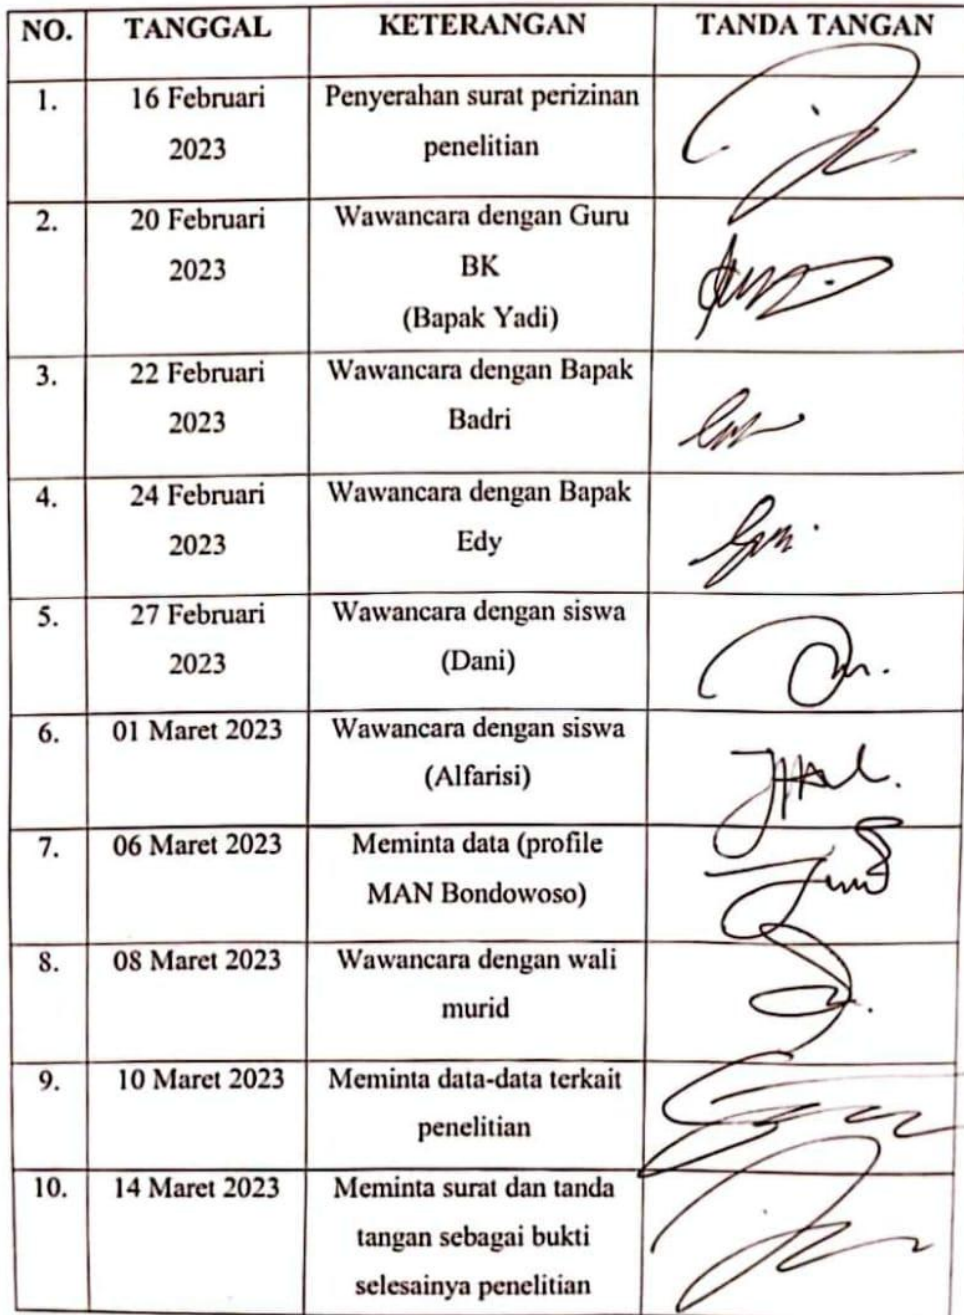 NO. TANGGAL KETERANGAN TANDA TANGAN
1. 16 Februari Penyerahan surat perizinan
2023 penelitian
2. 20 Februari Wawancara dengan Guru
2023 BK
(Bapak Yadi)
3. 22 Februari Wawancara dengan Bapak
2023 Badri
4. 24 Februari Wawancara dengan Bapak
2023 Edy
5. 27 Februari Wawancara dengan siswa
2023 (Dani)
6. 01 Maret 2023 Wawancara dengan siswa
(Alfarisi)
7. 06 Maret 2023 Meminta data (profile
MAN Bondowoso)
8. 08 Maret 2023 Wawancara dengan wali
murid
9. 10 Maret 2023 Meminta data-data terkait
penelitian
10. 14 Maret 2023 Meminta surat dan tanda
tangan sebagai bukti
selesainya penelitian